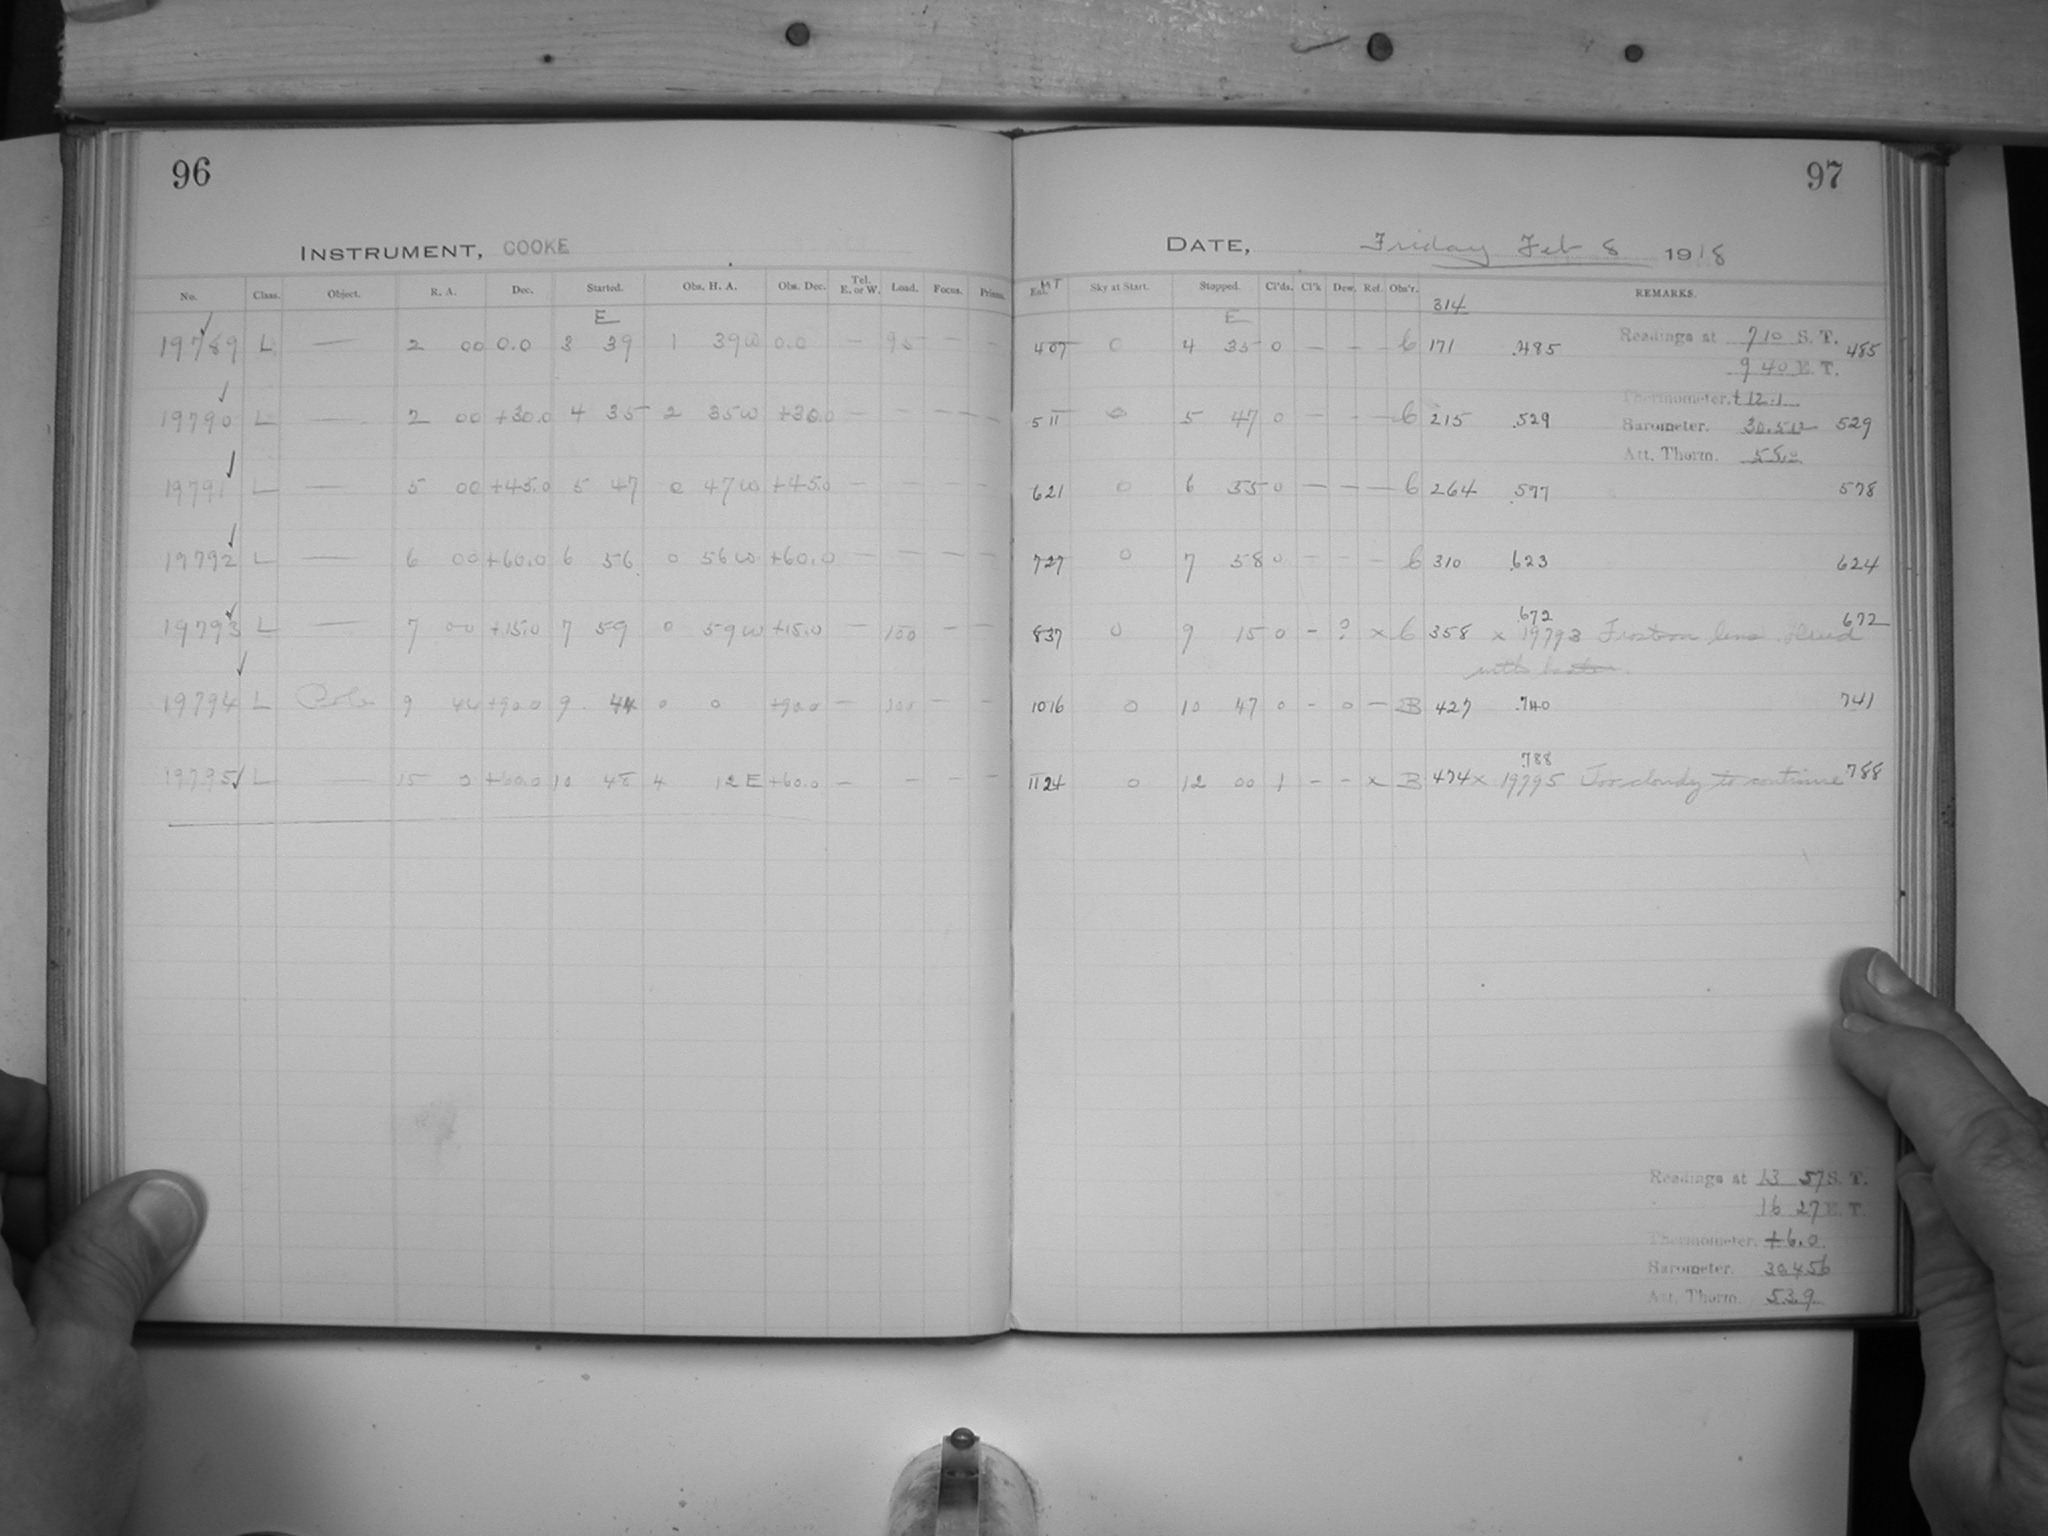 96
97
INSTRUMENT, COOKE
DATE, Friday Feb 8 1918
No. Class. Object. R. A. Dec. Started. Obs. H. A. Obs. Dec. Tel. E. or W. Load. Focus. Prism.
Sky at Start. Stopped. Cl'ds. Cl'k Dew. Ref. Obs'r. 314 REMARKS.
E
E
19789 L — 2 00 0.0 3 39 1 39W 0.0 — 95 — —
407 0 4 35 0 — — — 6 171 .485 Readings at 7 10 S. T. 485
9 40 E. T.
Thermometer. +12.1
19790 L — 2 00 +30.0 4 35 2 35W +30.0 — — — —
511 0 5 47 0 — — — 6 215 .529 Barometer. 30.512 529
Att. Therm. 55.0
19791 L — 5 00 +45.0 5 47 0 47W +45.0 — — — —
621 0 6 55 0 — — — 6 264 .577 578
19792 L — 6 00 +60.0 6 56 0 56W +60.0 — — — —
727 0 7 58 0 — — — 6 310 .623 624
19793 L — 7 00 +15.0 7 59 0 59W +15.0 — 100 — —
.672
837 0 9 15 0 — ? x 6 358 x 19793 Frost on lens. 672
with
19794 L Pole 9 44 +90.0 9 44 0 0 +90.0 — 100 — —
1016 0 10 47 0 — 0 — B 427 .740 741
19795 L — 15 0 +60.0 10 48 4 12E +60.0 — — — —
.788
1124 0 12 00 1 — — x B 474 x 19795 Too cloudy to continue 788
Readings at 13 57 S. T.
16 27 E. T.
Thermometer. +6.0
Barometer. 30.456
Att. Therm. 53.9